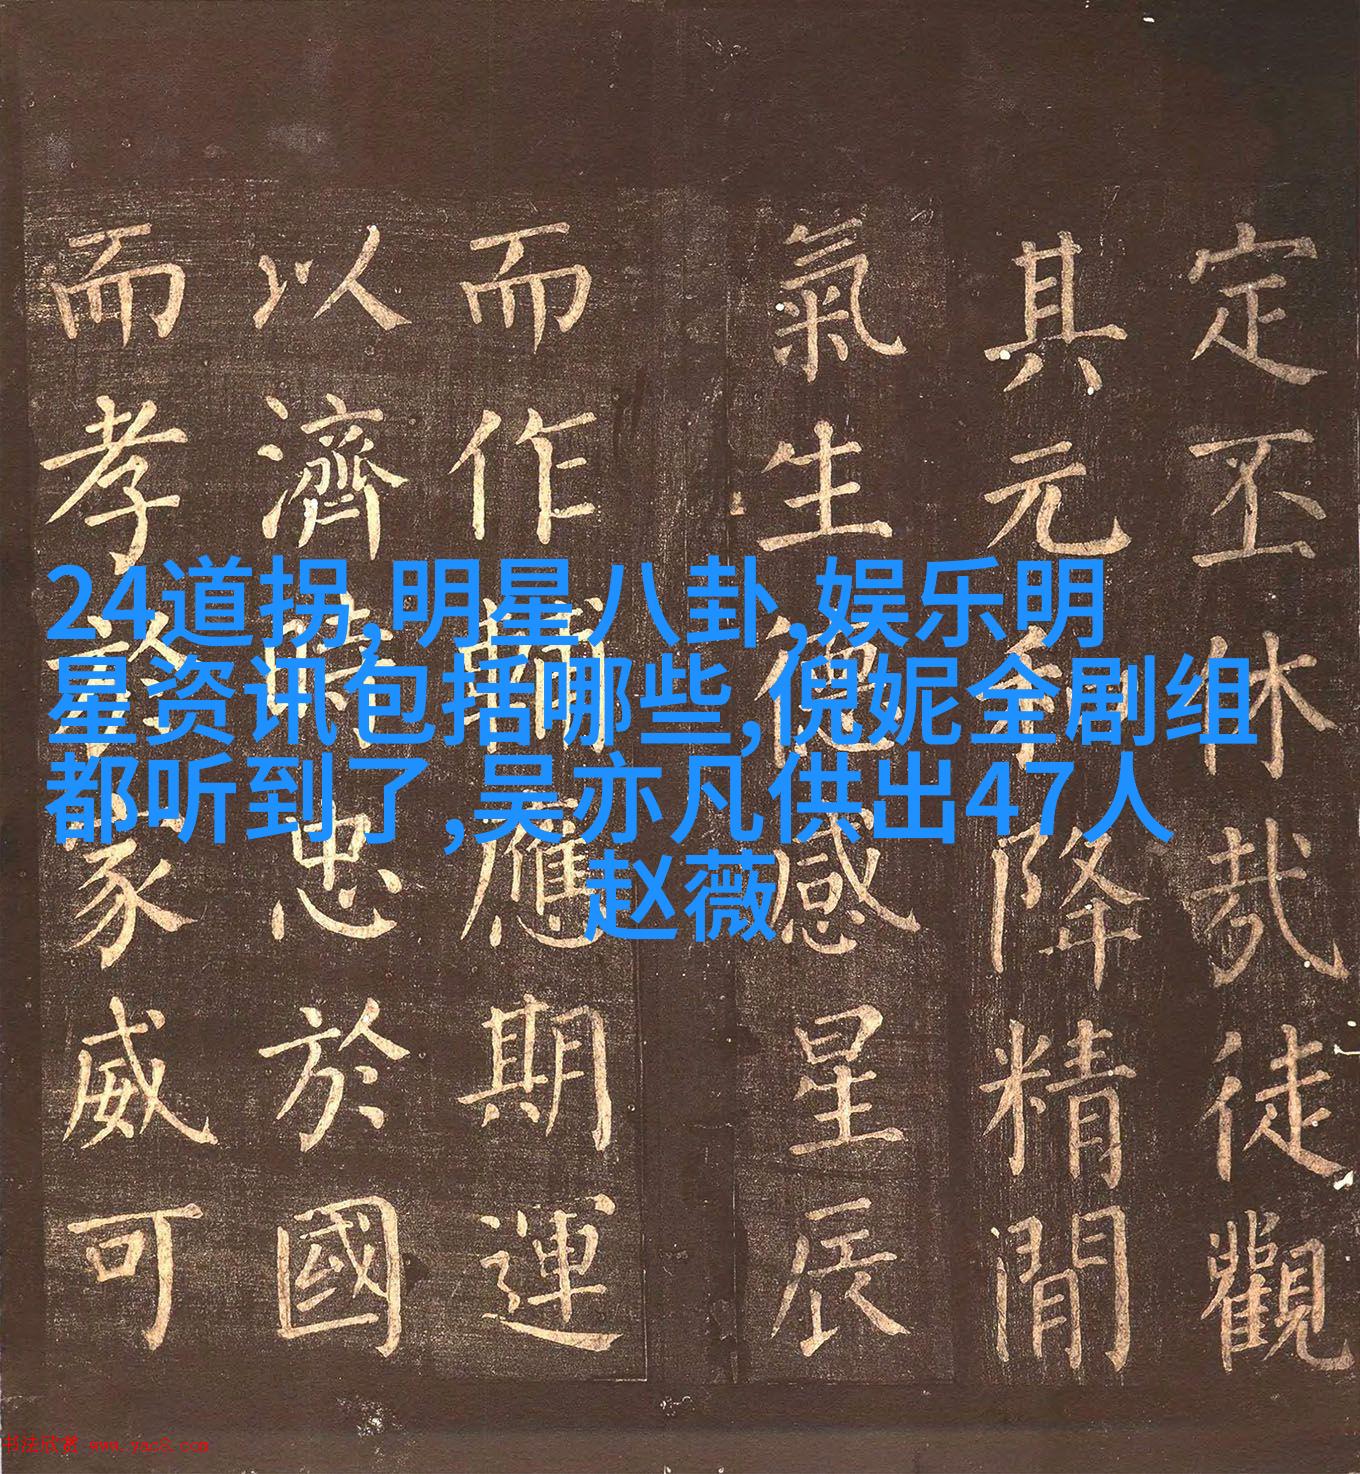 24道拐,明星八卦,娱乐明
星资讯包括哪些,倪妮全剧组
都听到了,吴亦凡供出47人
赵薇
定丕休哉徒觀
其元和降精閒
氣生德感星辰
而作輔應期運
以濟時忠於國
而孝於家威可
书法欣赏 www.yac8.com